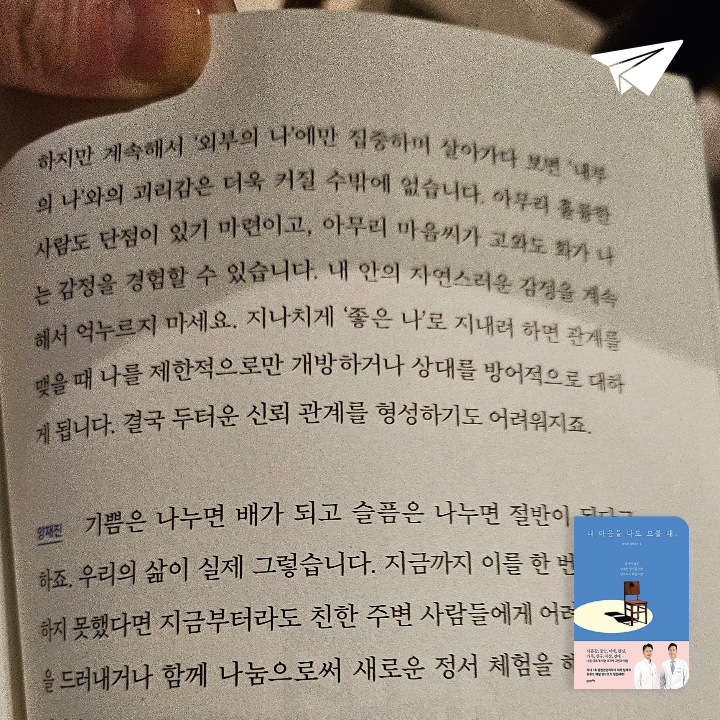 하지만 계속해서 '외부의 나'에만 집중하며 살아가다 보면 '내부
의 나'와의 괴리감은 더욱 커질 수밖에 없습니다. 아무리 훌륭한
사람도 단점이 있기 마련이고, 아무리 마음씨가 고와도 화가 나
는 감정을 경험할 수 있습니다. 내 안의 자연스러운 감정을 계속
해서 억누르지 마세요. 지나치게 '좋은 나'로 지내려 하면 관계를
맺을 때 나를 제한적으로만 개방하거나 상대를 방어적으로 대하
게 됩니다. 결국 두터운 신뢰 관계를 형성하기도 어려워지죠.
양재진 기쁨은 나누면 배가 되고 슬픔은 나누면 절반이 된다고
하죠. 우리의 삶이 실제 그렇습니다. 지금까지 이를 한 번
하지 못했다면 지금부터라도 친한 주변 사람들에게
을 드러내거나 함께 나눔으로써 새로운 정서 체험을
내 마음을 나도 모를 때